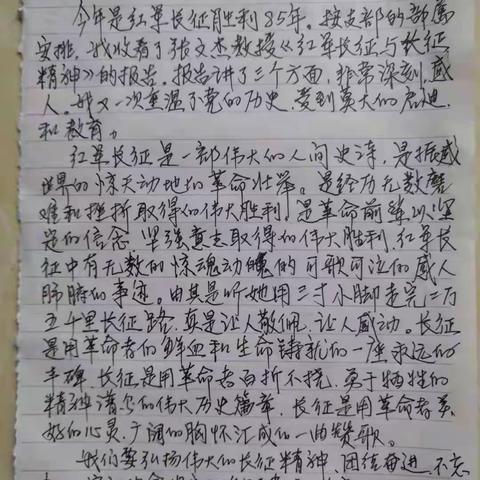 今年是红军长征胜利85年。按支部的部属
安排，我收看了张文杰教授《红军长征与长征
精神》的报告。报告讲了三个方面，非常深刻，感
人。我又一次重温了党的历史，受到莫大的启迪，
和教育。
红军长征是一部伟大的人间史诗，是振感
世界的惊天动地的革命壮举。是经历无数磨
难和挫折取得的伟大胜利，是革命前辈以坚
定的信念，坚强意志取得的伟大胜利，红军长
征中有无数的惊魂动魄的可歌可泣的感人
肺腑的事迹。由其是听她用三寸小脚走完二万
五千里长征路，真是让人敬佩，让人感动。长征
是用革命者们鲜血和生命铸就的一座永远的
丰碑，长征是用革命者百折不挠，勇于牺牲的
精神谱写的伟大历史篇章，长征是用革命者美
好的心灵，广阔的胸怀汇成的一曲赞歌。
我们要弘扬伟大的长征精神，团结奋进，不忘